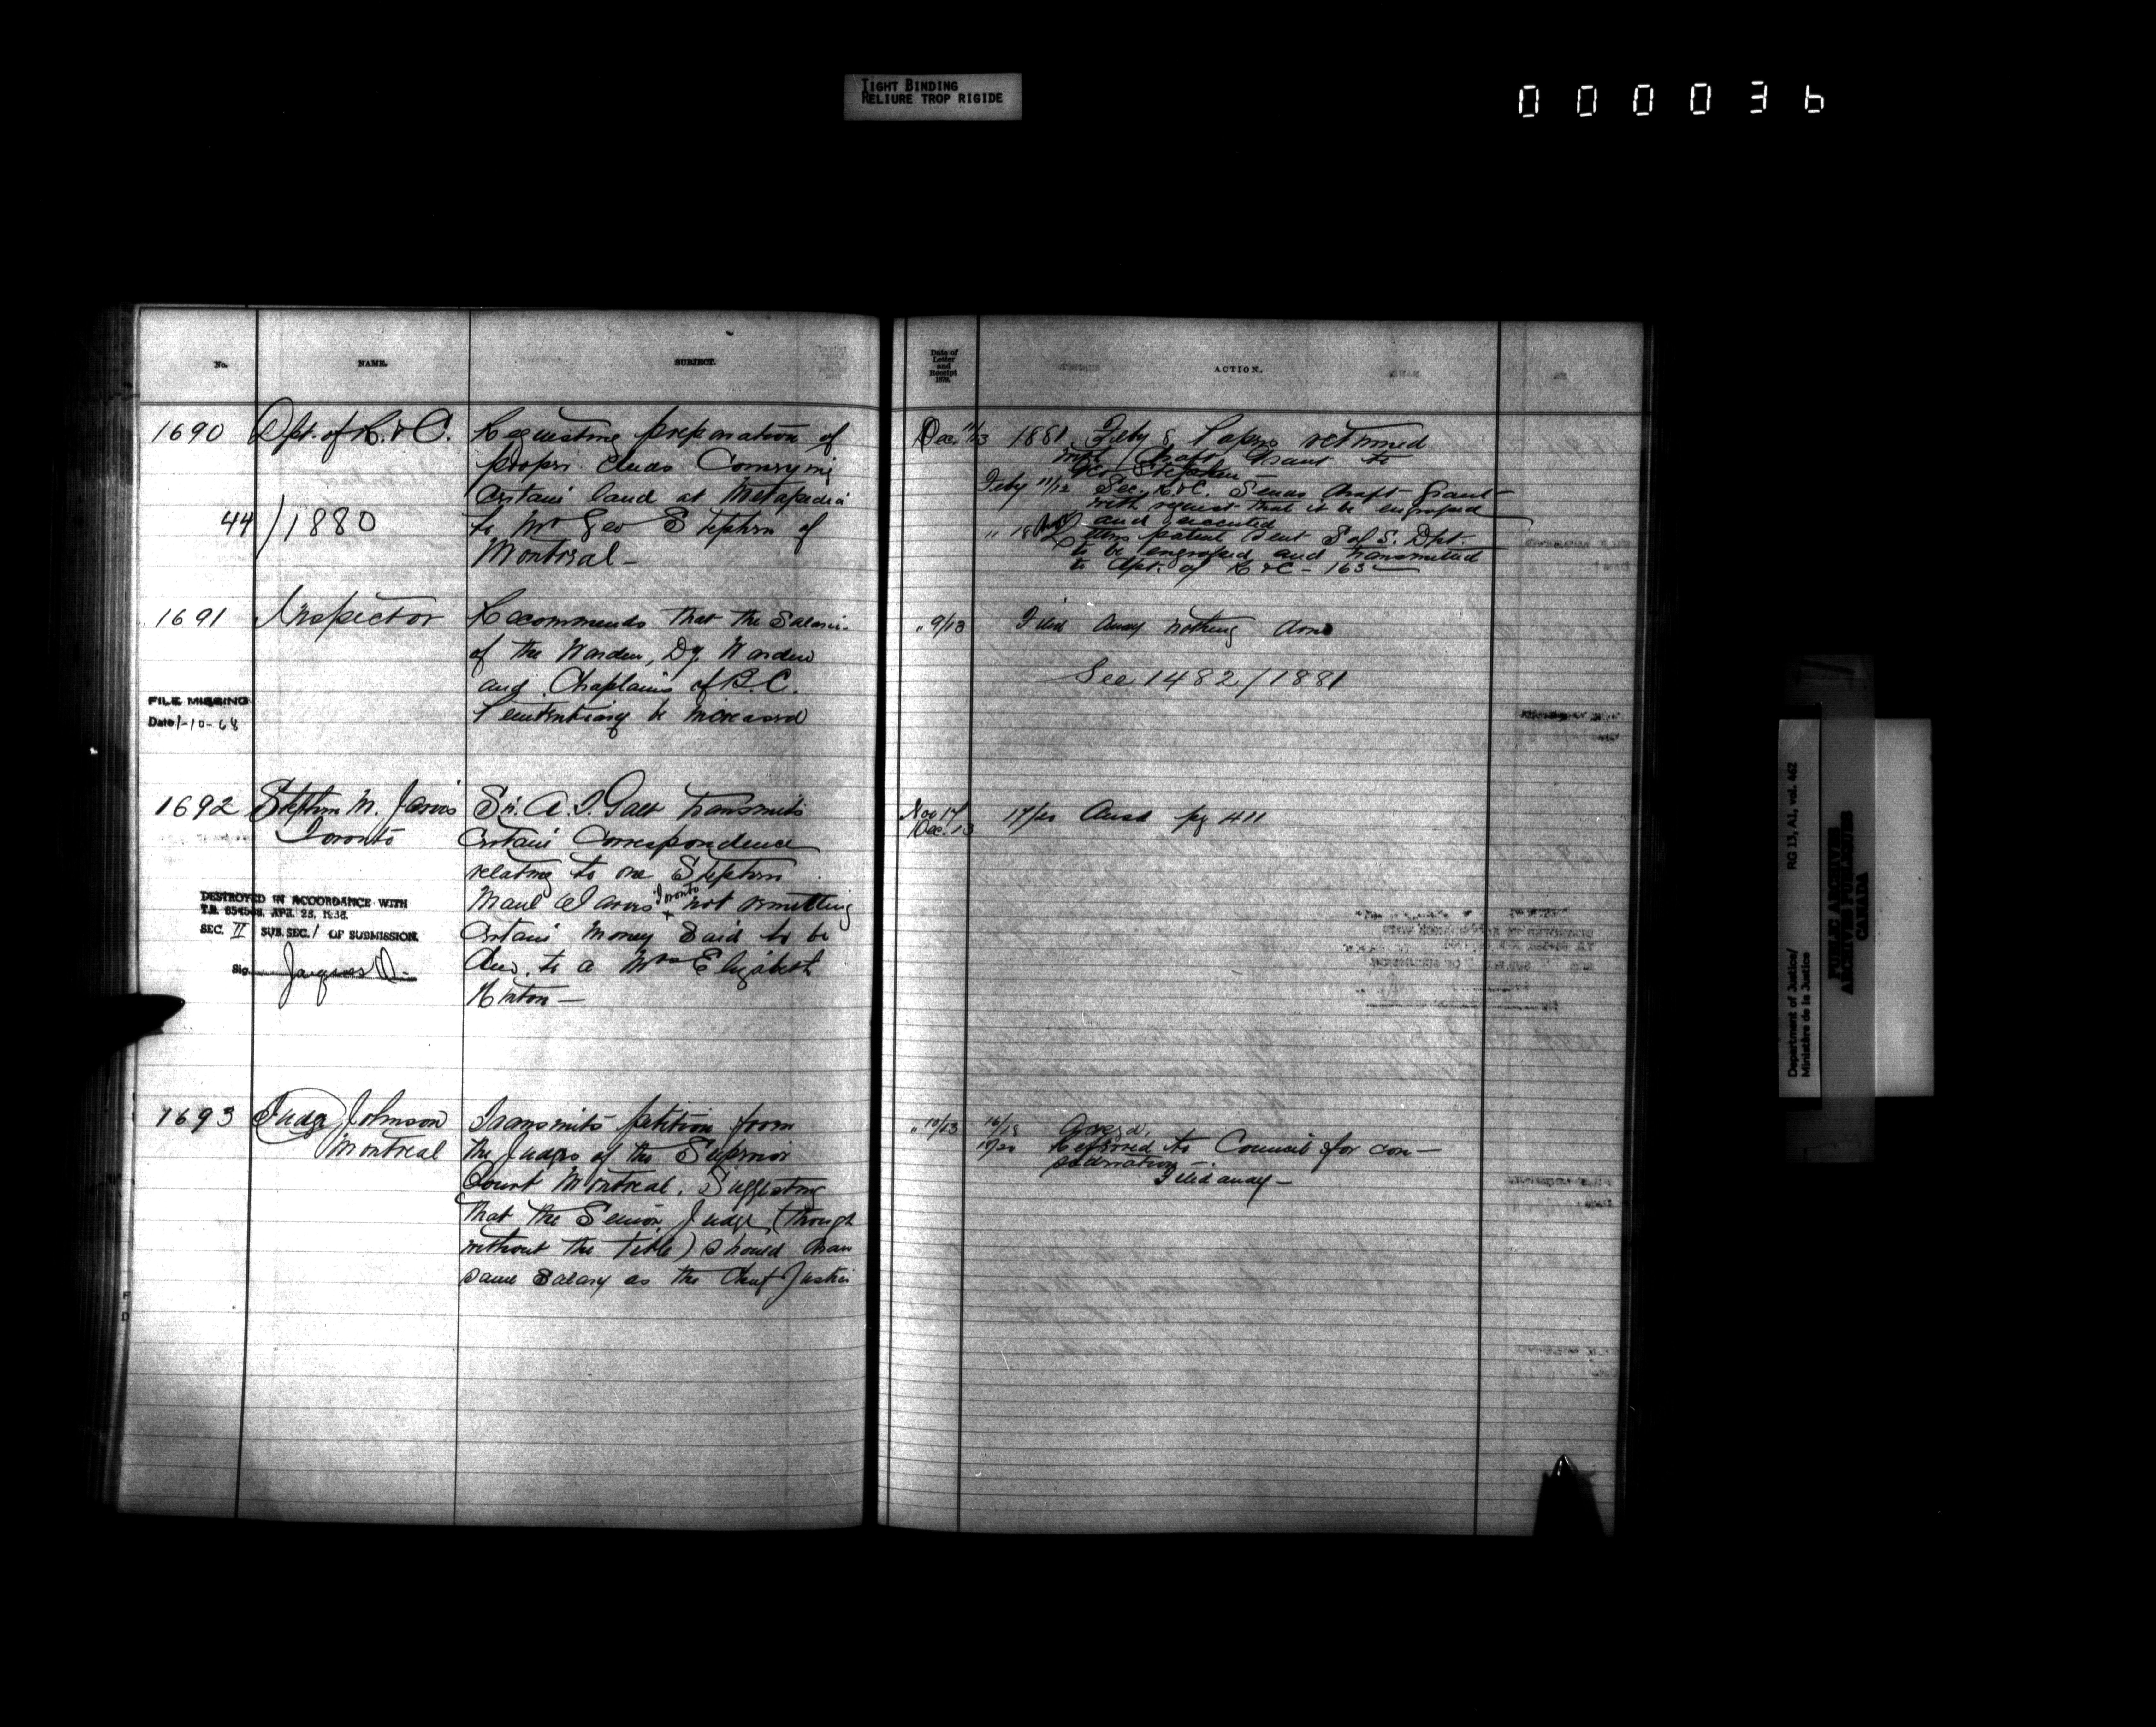 TIGHT BINDING
RELIURE TROP RIGIDE
000036
No.
NAME.
SUBJECT.
Date of
Letter
and
Receipt
1879.
ACTION.
1690
Dpt. of R. & C.
Requesting preparation of
proper deeds Conveying
Certain land at Metapedia
44/1880
to Mr Geo Stephen of
Montreal –
Dec. 11/13
1881. Feby 8 Papers returned
with Draft Grant to
Geo Stephen –
Feby 11/12 Sec. R & C. Sends draft Grant
with request that it be engrossed
and executed
" 18 Letters patent sent S of S. Dpt.
to be engrossed and transmitted
to Dpt. of R & C – 163
1691
Inspector
Recommends that the Salaries
of the Warden, Dy. Warden
and Chaplains of B.C.
Penitentiary be increased
FILE MISSING
Date 1-10-68
" 9/13
Filed away nothing done
See 1482/1881
1692
Stephen M. Jarvis
Toronto
Sir A. T. Galt transmits
Certain Correspondence
relating to one Stephen
Maul Jarvis Toronto not remitting
Certain Money Said to be
due to a Mrs Elizabeth
Hinton –
DESTROYED IN ACCORDANCE WITH
T.B. APR. 25, 1938.
SEC. II SUB. SEC. 1 OF SUBMISSION.
Sig.
Nov 17
Dec. 13
17/20 Ansd pg 411
1693
Judge Johnson
Montreal
Transmits petition from
the Judges of the Superior
Court Montreal. Suggesting
that the Senior Judge (though
without the title) should have
same Salary as the Chief Justice
" 10/13
16/18 Ackgd.
19/20 Referred to Council for con–
sideration –
Filed away –
Department of Justice/
Ministère de la Justice
RG 13, A1, vol. 462
PUBLIC ARCHIVES
ARCHIVES PUBLIQUES
CANADA